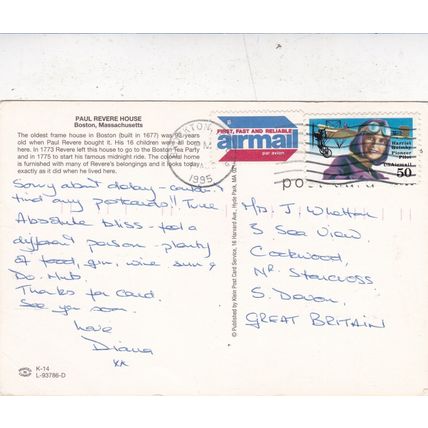 PAUL REVERE HOUSE
Boston, Massachusetts
The oldest frame house in Boston (built in 1677) was 93 years
old when Paul Revere bought it. His 16 children were all born
here. In 1773 Revere left this house to go to the Boston Tea Party
and in 1775 to start his famous midnight ride. The colonial home
is furnished with many of Revere's belongings and it looks today
exactly as it did when he lived here.
Sorry about delay - couldn't
find any postcards!! Time
Absolute bliss - feel a
different person - plenty
of food, gin, wine sun &
Do. Hub.
Thanks for card.
See you soon.
love
Diana
xx
K-14
L-93786-D
© Published by Klein Post Card Service, 16 Harvard Ave., Hyde Park, MA
BOSTON
PM
1995
FIRST, FAST AND RELIABLE
airmail
par avion
Harriet
Quimby
Pioneer
Pilot
USAirmail
50
Mrs J. Whetton
3 Sea View,
Cockwood,
Nr. Starcross
S. Devon,
GREAT BRITAIN